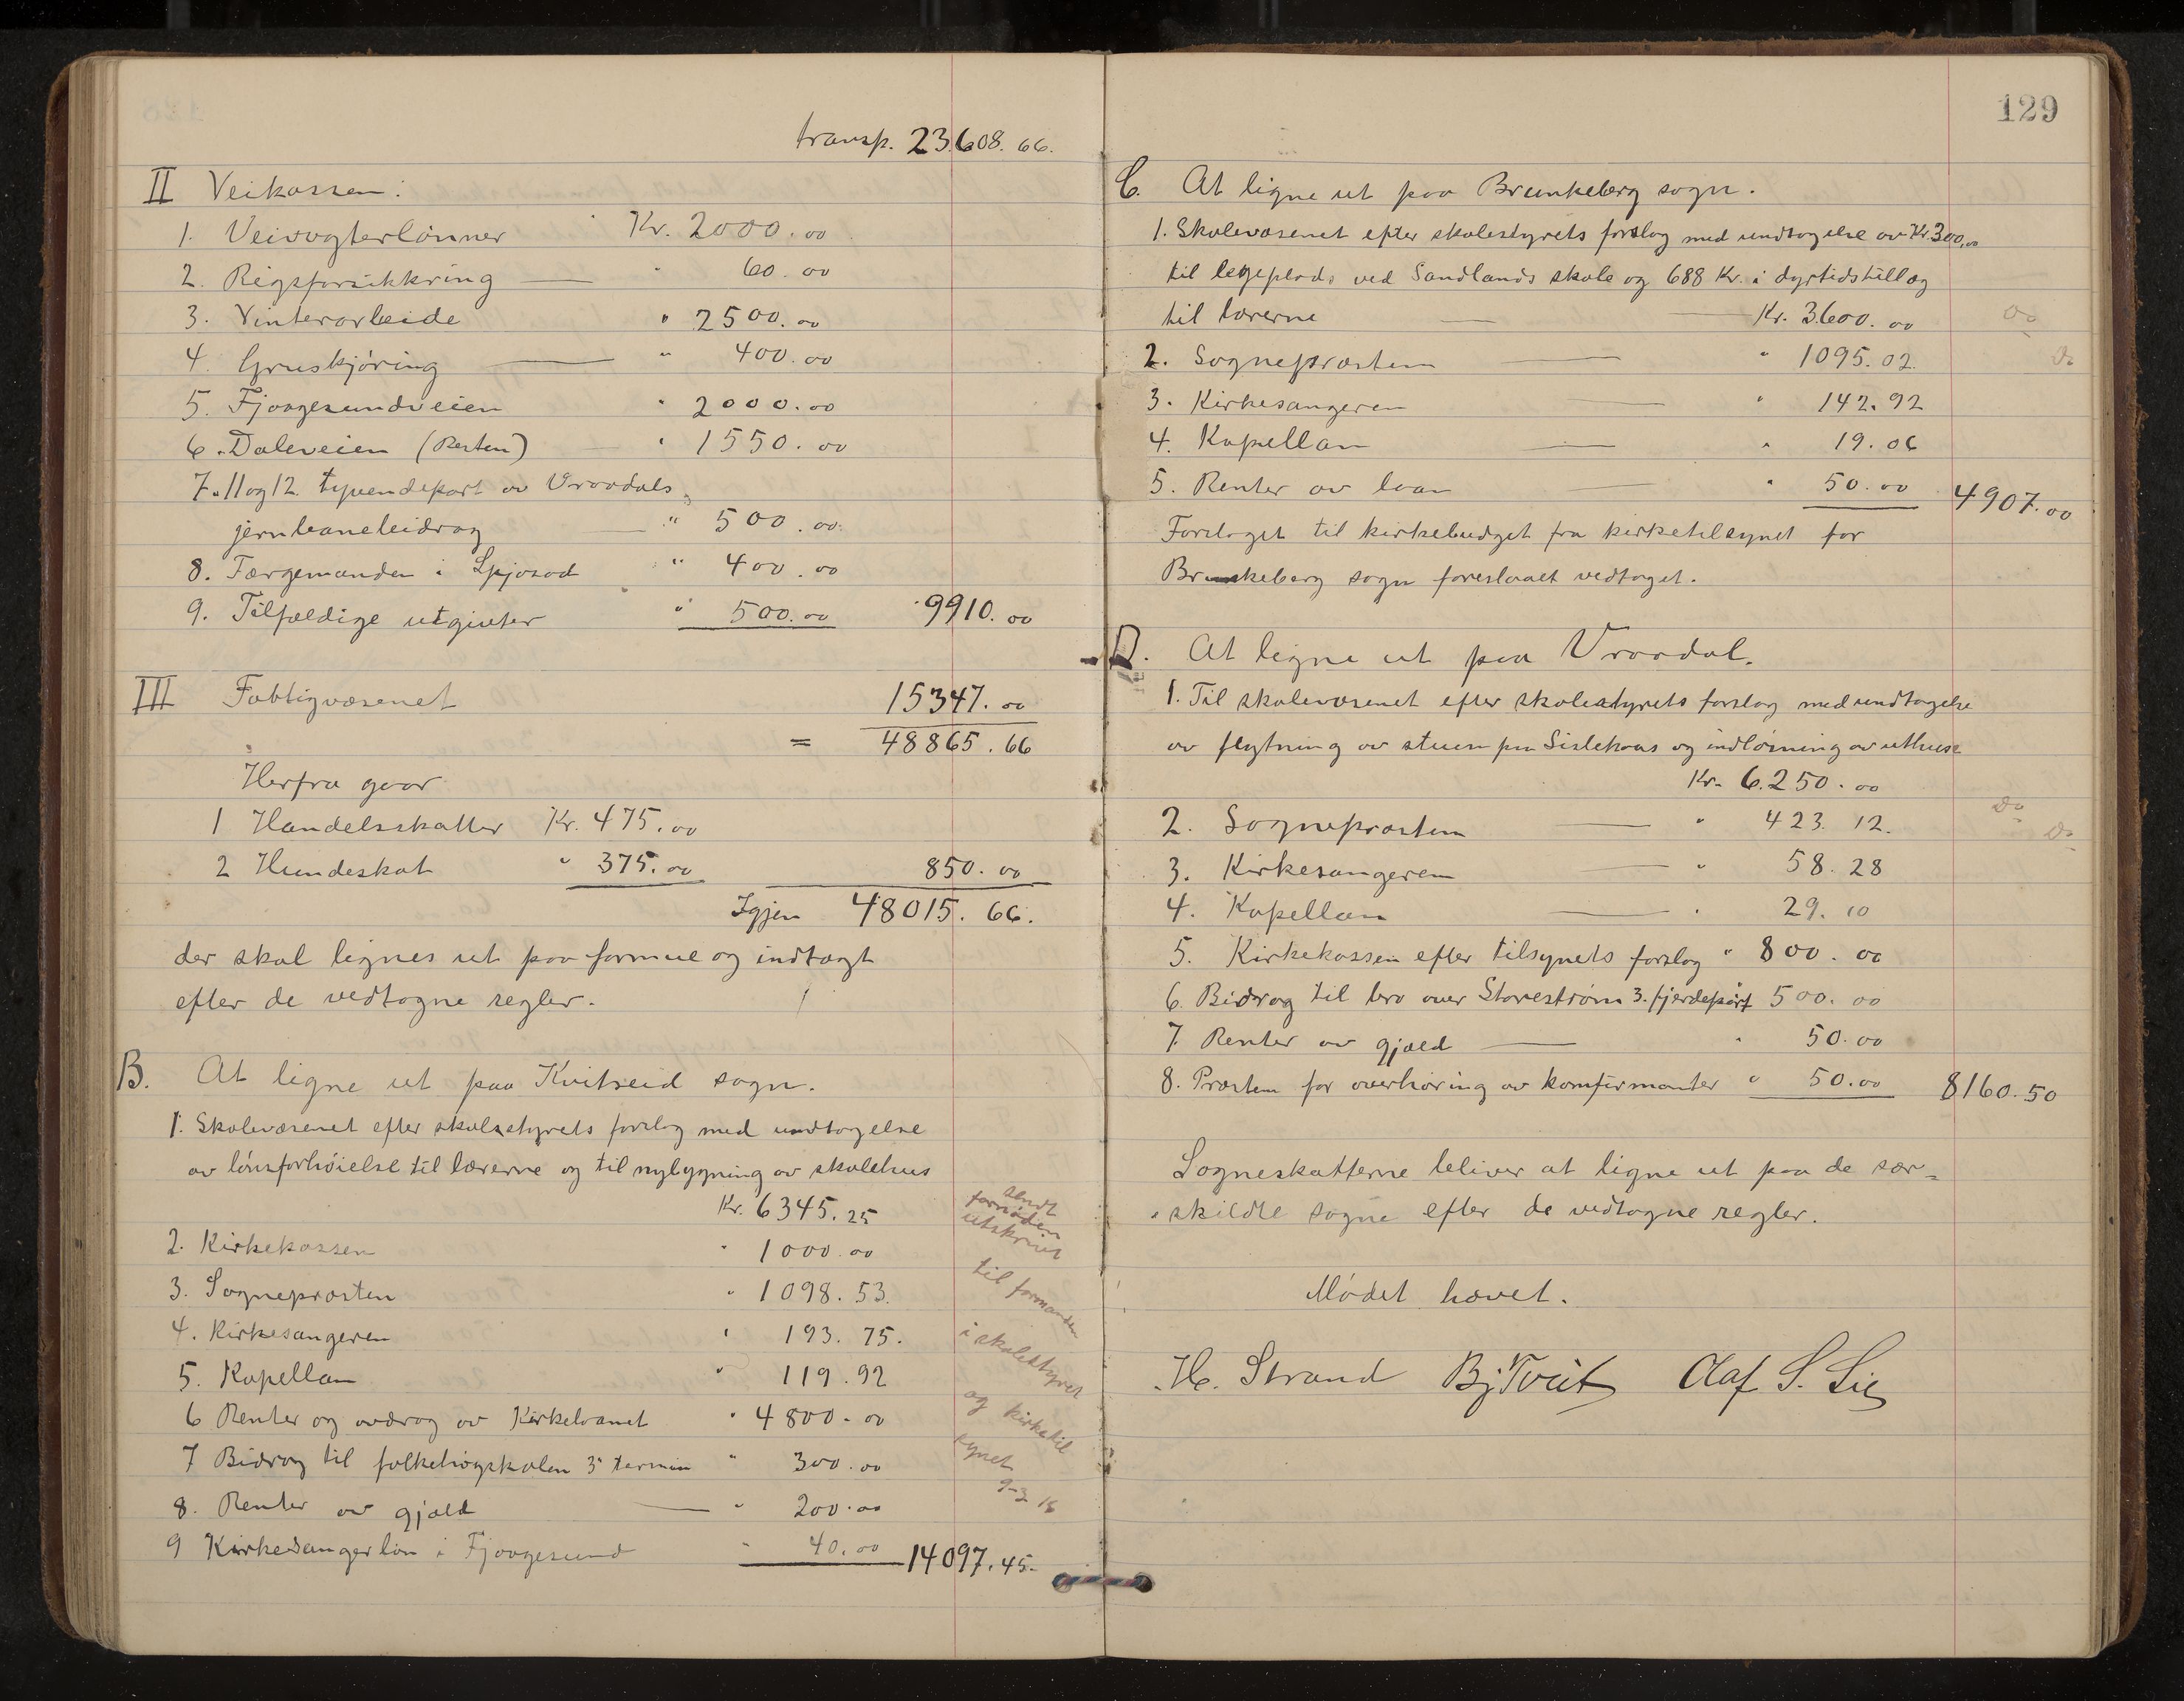 transp. 23.608.66.
II Veikassen:
1. Veivogterlønner Kr. 2000.00
2. Rigsforsikkring — " 60.00
3. Vinterarbeide " 2500.00
4. Gruskjøring — " 400.00
5. Fjaagesundveien " 2000.00
6. Daleveien (Resten) " 1550.00
7. 11 og 12. tyvendepart av Vraadals
jernbanebidrag — " 500.00
8. Færgemanden i Spjosod " 400.00
9. Tilfældige utgivter " 500.00 9910.00
III Fattigvæsenet 15347.00
= 48865.66
Herfra gaar
1 Handelsskatter Kr. 475.00
2 Hundeskat " 375.00 850.00
Igjen 48015.66.
der skal lignes ut paa formue og indtægt
efter de vedtagne regler.
B. At ligne ut paa Kvitseid sogn.
1. Skolevæsenet efter skolestyrets forslag med undtagelse
av lønsforhøielse til lærerne og til nybygning av skolehus
Kr. 6345.25
2. Kirkekassen " 1000.00
3. Sognepræsten " 1098.53.
4. Kirkesangeren " 193.75.
5. Kapellan " 119.92
6 Renter og avdrag av Kirkelaanet " 4800.00
7 Bidrag til folkehøgskolen 3' termin " 300.00
8. Renter av gjæld — " 200.00
9 Kirkesangerløn i Fjaagesund " 40.00 14097.45.
sendt
fornøden
utskrivt
til formanden
i skolestyret
og kirketil
synet
9-3 16
129
C. At ligne ut paa Brunkeberg sogn.
1. Skolevæsenet efter skolestyrets forslag med undtagelse av Kr. 300,00
til legeplads ved Sandlands skole og 688 Kr. i dyrtidstillæg
til lærerne — Kr. 3.600.00
2. Sognepræsten — " 1095.02.
3. Kirkesangeren — " 142.92
4. Kapellan — " 19.06
5. Renter av laan — " 50.00 4907.00
Forslaget til kirkebudget fra kirketilsynet for
Brunkeberg sogn foreslaaet vedtaget.
D. At ligne ut paa Vraadal.
1. Til skolevæsenet efter skolestyrets forslag med undtagelse
av flytning av stuen paa Sislehaas og indløsning av uthuse
Kr. 6.250.00
2. Sognepræsten — " 423.12.
3. Kirkesangeren — " 58.28
4. Kapellan — " 29.10
5. Kirkekassen efter tilsynets forslag " 800.00
6. Bidrag til bro over Storestrøm 3. fjerdepart 500.00
7. Renter av gjæld — " 50.00
8. Præsten for overhøring av komfirmanter " 50.00 8160.50
Sogneskatterne bliver at ligne ut paa de sær=
skildte sogne efter de vedtagne regler.
Mødet hævet.
H. Strand Bj. Tveit Olaf S. Lie